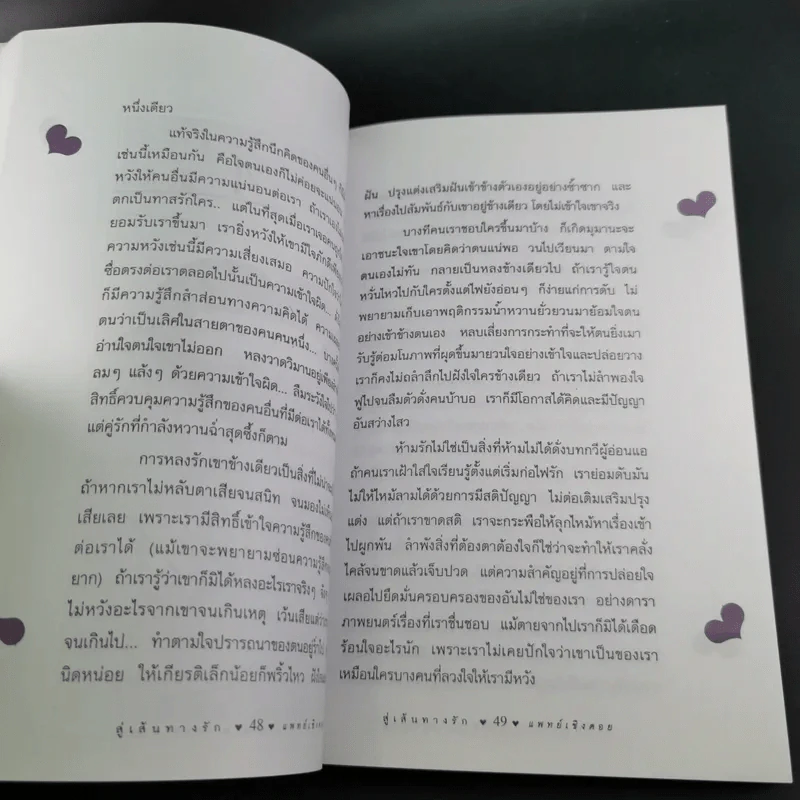 หนึ่งเดียว
แท้จริงในความรู้สึกนึกคิดของคนอื่นๆ ก็
เช่นนี้เหมือนกัน คือใจตนเองก็ไม่ค่อยจะแน่นอน
หวังให้คนอื่นมีความแน่นอนต่อเรา ถ้าเรา
ตกเป็นทาสรักใคร.. แต่ในที่สุดเมื่อเราเจอคน
ยอมรับเราขึ้นมา เรายิ่งหวังให้เขามีใจภักดี
ความหวังเช่นนี้มีความเสี่ยงเสมอ ความ
ซื่อตรงต่อเราตลอดไปนั้นเป็นความเข้าใจผิด...
ก็มีความรู้สึกสำส่อนทางความคิดได้
ตนว่าเป็นเลิศในสายตาของคนคนหนึ่ง...
อ่านใจตนใจเขาไม่ออก หลงวาดวิมานอยู่
ลมๆ แล้งๆ ด้วยความเข้าใจผิด... ลืมระวัง
สิทธิ์ควบคุมความรู้สึกของคนอื่นที่มีต่อเราได้
แต่คู่รักที่กำลังหวานฉ่ำสุดซึ้งก็ตาม
การหลงรักเขาข้างเดียวเป็นสิ่งที่ไม่
ถ้าหากเราไม่หลับตาเสียจนสนิท จนมองไม่
เสียเลย เพราะเรามีสิทธิ์เข้าใจความรู้สึกของ
ต่อเราได้ (แม้เขาจะพยายามซ่อนความรู้สึก
ยาก) ถ้าเรารู้ว่าเขาก็มิได้หลงอะไรเราจริงๆ
ไม่หวังอะไรจากเขาจนเกินเหตุ เว้นเสียแต่
จนเกินไป... ทำตามใจปรารถนาของตนอยู่
นิดหน่อย ให้เกียรติเล็กน้อยก็พริ้วไหว
สู่เส้นทางรัก ♥ 48 ♥ แพทย์เชิง
ฝัน ปรุงแต่งเสริมฝันเข้าข้างตัวเองอยู่อย่างซ้ำซาก และ
หาเรื่องไปสัมพันธ์กับเขาอยู่ข้างเดียว โดยไม่เข้าใจเขาจริง
บางทีคนเราชอบใครขึ้นมาบ้าง ก็เกิดมุมานะจะ
เอาชนะใจเขาโดยคิดว่าตนแน่พอ วนไปเวียนมา ตามใจ
ตนเองไม่ทัน กลายเป็นหลงข้างเดียวไป ถ้าเรารู้ใจตน
หวั่นไหวไปกับใครตั้งแต่ไฟยังอ่อนๆ ก็ง่ายแก่การดับ ไม่
พยายามเก็บเอาพฤติกรรมน้ำหวานยั่วยวนมาย้อมใจตน
อย่างเข้าข้างตนเอง หลบเลี่ยงการกระทำที่จะให้ตนยิ่งเมา
รับรู้ต่อมโนภาพที่ผุดขึ้นมายวนใจอย่างเข้าใจและปล่อยวาง
เราก็คงไม่ถลำลึกไปฝังใจใครข้างเดียว ถ้าเราไม่ลำพองใจ
ฟูไปจนลืมตัวดั่งคนบ้าบอ เราก็มีโอกาสได้คิดและมีปัญญา
อันสว่างไสว
ห้ามรักไม่ใช่เป็นสิ่งที่ห้ามไม่ได้ดั่งบทกวีผู้อ่อนแอ
ถ้าคนเราเฝ้าใส่ใจเรียนรู้ตั้งแต่เริ่มก่อไฟรัก เราย่อมดับมัน
ไม่ให้ไหม้ลามได้ด้วยการมีสติปัญญา ไม่ต่อเติมเสริมปรุง
แต่ง แต่ถ้าเราขาดสติ เราจะกระพือให้ลุกไหม้หาเรื่องเข้า
ไปผูกพัน ลำพังสิ่งที่ต้องตาต้องใจก็ใช่ว่าจะทำให้เราคลั่ง
ไคล้จนขาดแล้วเจ็บปวด แต่ความสำคัญอยู่ที่การปล่อยใจ
เผลอไปยึดมั่นครอบครองของอันไม่ใช่ของเรา อย่างดารา
ภาพยนตร์เรื่องที่เราชื่นชอบ แม้ตายจากไปเราก็มิได้เดือด
ร้อนใจอะไรนัก เพราะเราไม่เคยปักใจว่าเขาเป็นของเรา
เหมือนใครบางคนที่ลวงใจให้เรามีหวัง
สู่เส้นทางรัก ♥ 49 ♥ แพทย์เชิงดอย